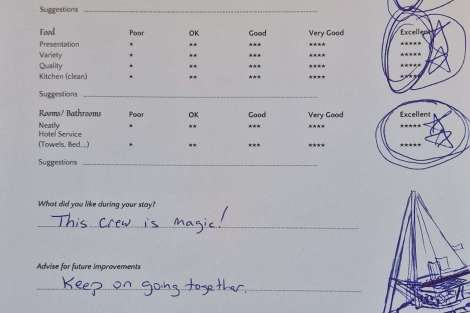 Suggestions
Food Poor OK Good Very Good Excellent
Presentation * ** *** **** *****
Variety * ** *** **** *****
Quality * ** *** **** *****
Kitchen (clean) * ** *** **** *****
Suggestions
Rooms/ Bathrooms Poor OK Good Very Good Excellent
Neatly * ** *** **** *****
Hotel Service
(Towels, Bed...) * ** *** **** *****
Suggestions
What did you like during your stay?
This crew is magic!
Advise for future improvements
Keep on going together.